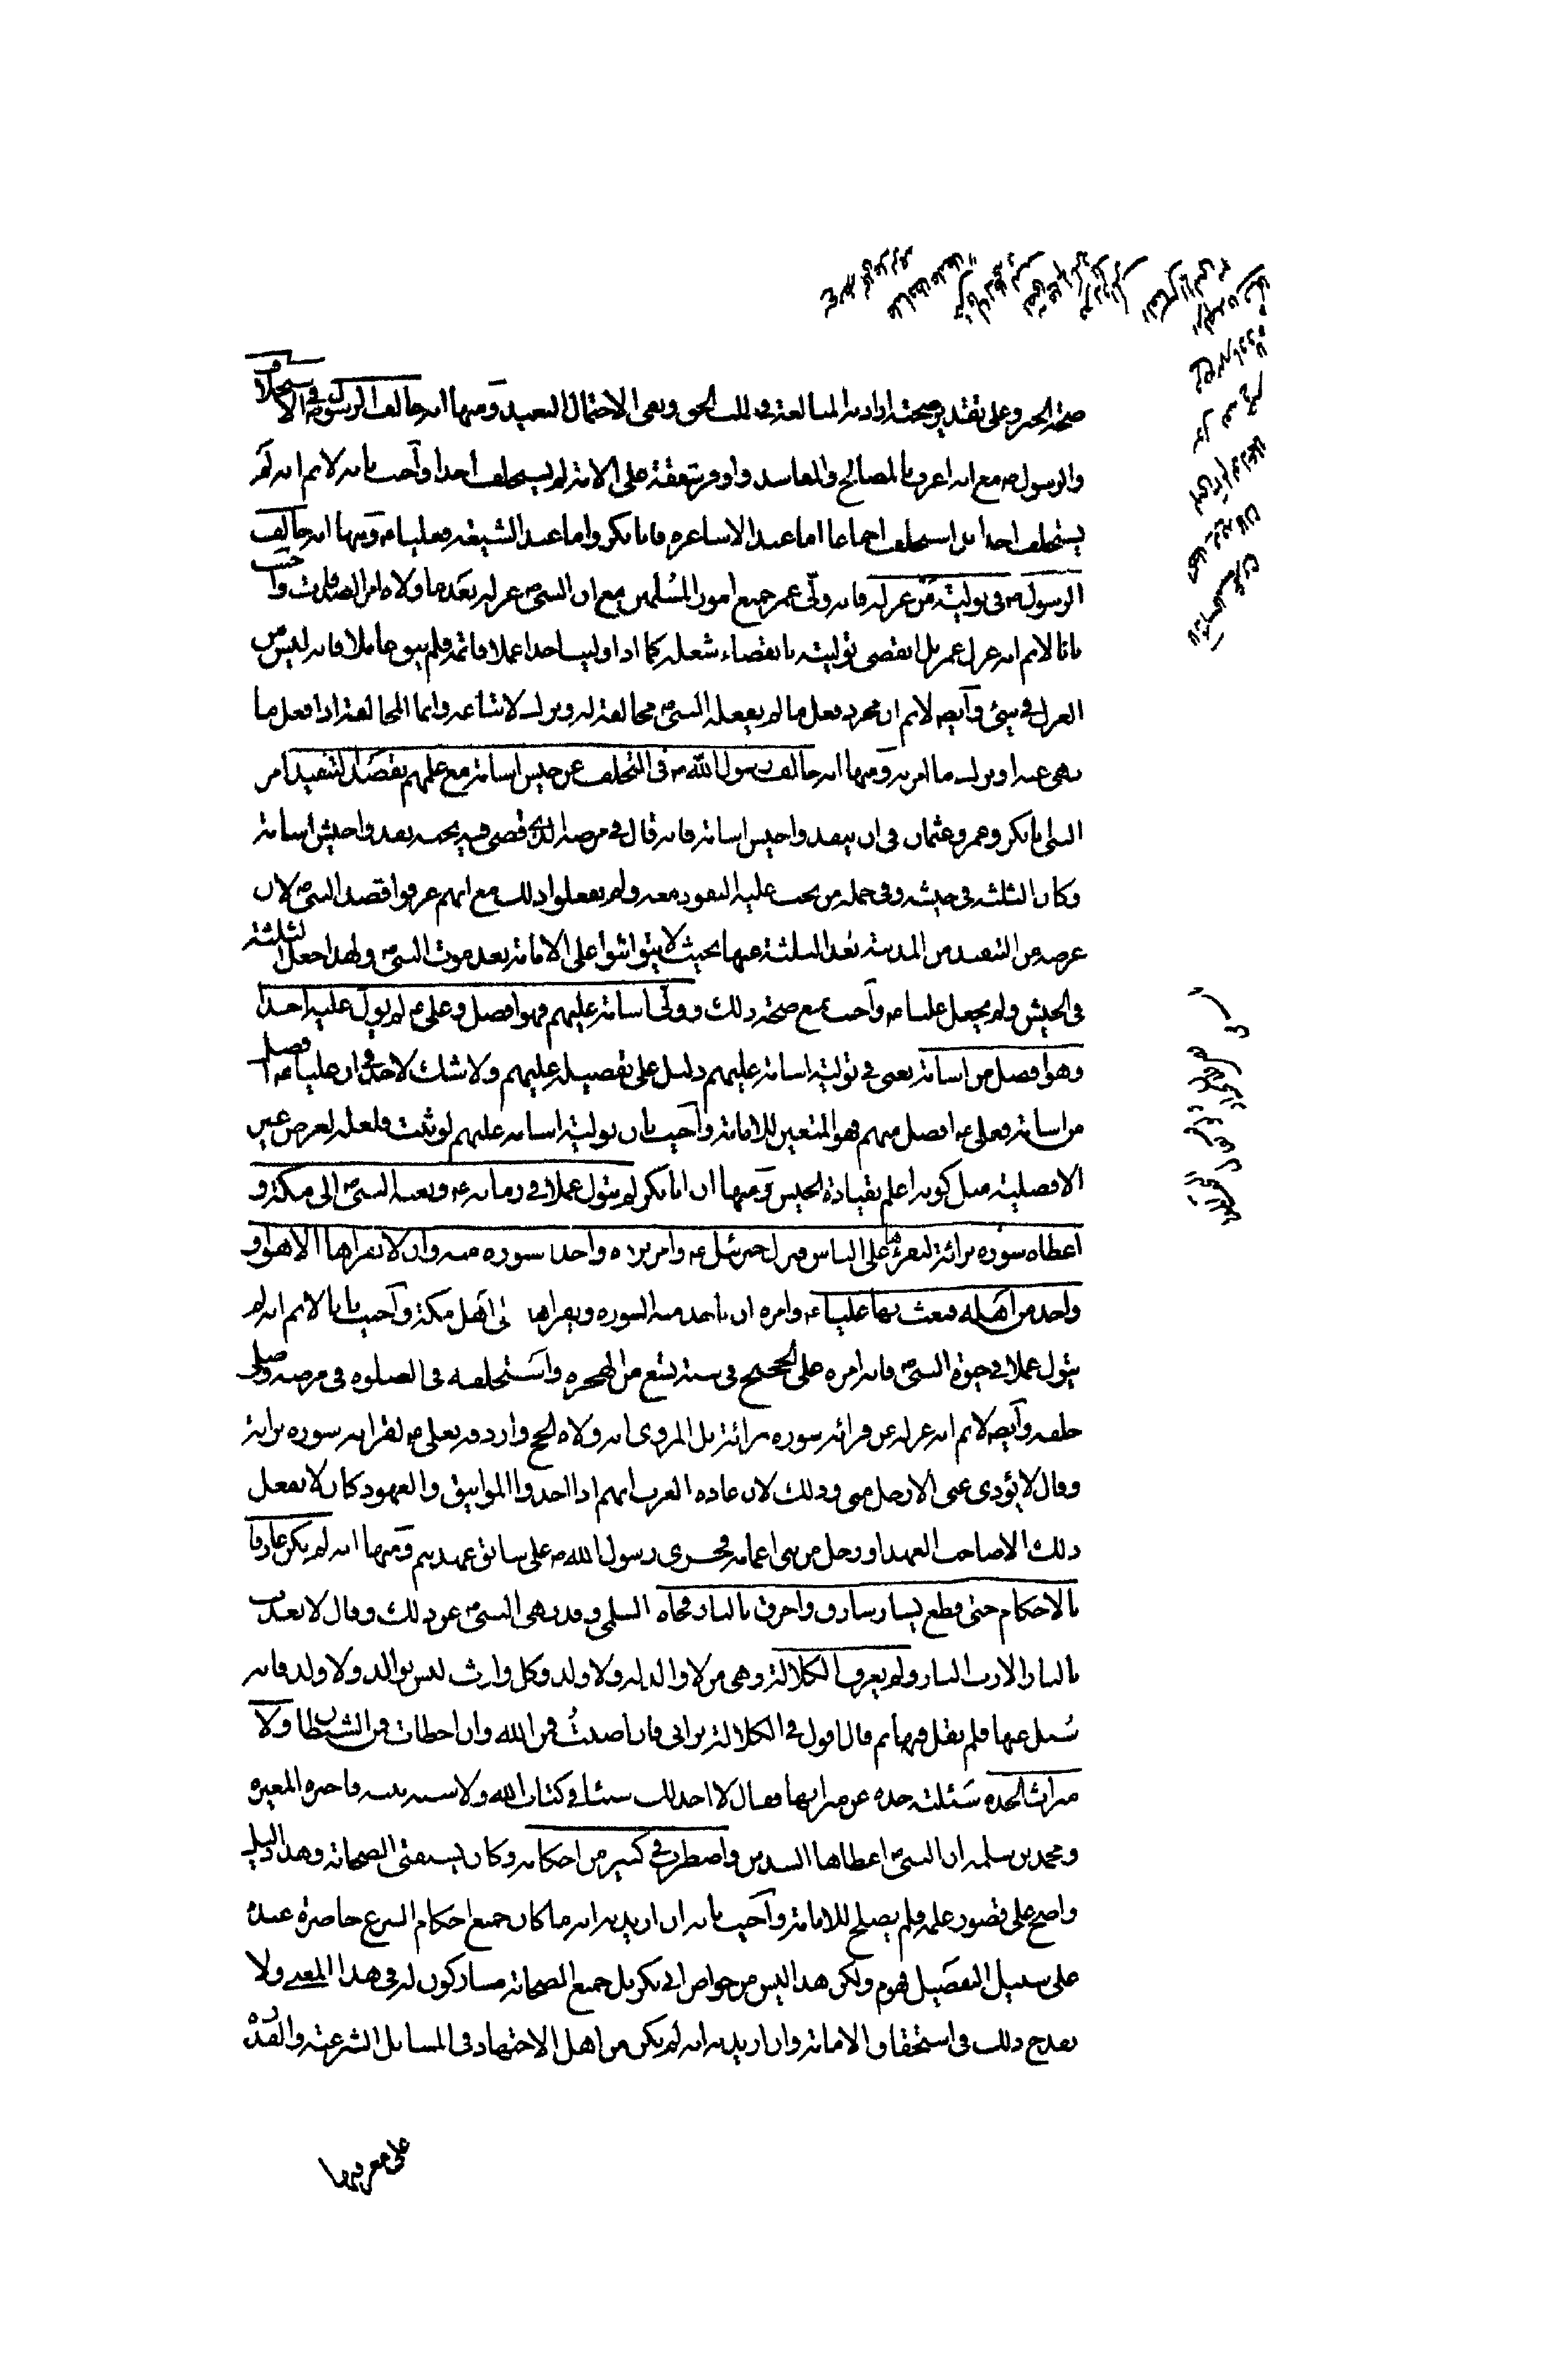 صحة الخبر وعلى تقدير صحته اراد به المبالغة في طلب الحق ونفي الاحتمال البعيد ومنها انه خالف الرسول ص في الاستخلاف
والرسول ص مع انه اعرف بالمصالح والمفاسد واوفر شفقة على الامة لم يستخلف احدا واجيب بانه لانم انه لم
يستخلف احدا بل استخلف اجماعا اما عند الاشاعرة فابا بكر واما عند الشيعة فعليا ع ومنها انه خالف
الرسول ص في تولية من عزله فانه ولّى عمر جميع امور المسلمين مع ان النبي ص عزله بعد ما ولاه امر الصدقات واجيب
بانا لانم انه عزل عمر بل انقضى توليته بانقضاء شغله كما اذا وليت احدا عملا فاتمه فلم يبق عاملا فانه ليس من
العزل في شيئ وايضا لانم ان مجرد فعل ما لم يفعله النبي ص مخالفة له وترك لاتباعه وانما المخالفة اذا فعل ما
نهى عنه او ترك ما امر به ومنها انه خالف رسول الله ص في التخلف عن جيش اسامة مع علمهم بقصد التنفيذ امر
النبي ابا بكر وعمر وعثمان في ان ينفذوا جيش اسامة فانه قال في مرضه الذي قضى فيه نحبه نفذوا جيش اسامة
وكان الثلثة في جيشه وفي جملة من يجب عليه النفوذ معه ولم يفعلوا ذلك مع انهم عرفوا قصد النبي ص لان
غرضه من التنفيذ من المدينة بعد الثلثة عنها بحيث لا يتواثبوا على الامامة بعد موت النبي ص ولهذا جعل الثلثة
في الجيش ولم يجعل عليا ع واجيب بمنع صحة ذلك وولّى اسامة عليهم فهو افضل وعلي ع لم يولّ عليه احدا
وهو افضل من اسامة يعني في تولية اسامة عليهم دليل على تفضيله عليهم ولا شك لاحد في ان عليا ع افضل
من اسامة فعلي ع افضل منهم فهو المتعين للامامة واجيب بان تولية اسامة عليهم لو ثبت فلعله لغرض غير
الافضلية مثل كونه اعلم بقيادة الجيش ومنها ان ابا بكر لم يتول عملا في زمانه ع وبعثه النبي ص الى مكة و
اعطاه سورة برائة ليقرئها على الناس فنزل جبرئيل ع وامر برده واخذ السورة منه وان لا يقرأها الا هو او
واحد من اهله فبعث بها عليا ع وامره ان يأخذ منه السورة ويقرأها على اهل مكة واجيب بانا لانم انه لم
يتول عملا في حيوة النبي ص فانه امره على الحجيج في سنة تسع من الهجرة واستخلفه في الصلوة في مرضه وصلى
خلفه وايضا لانم انه عزله عن قرائة سورة برائة بل المروي انه ولاه الحج واردفه بعلي ع لقرائة سورة برائة
وقال لا يؤدى عني الا رجل مني وذلك لان عادة العرب انهم اذا اخذوا المواثيق والعهود كان لا يفعل
ذلك الا صاحب العهد او رجل من بني اعمامه فجرى رسول الله ص على سابق عهدهم ومنها انه لم يكن عارفا
بالاحكام حتى قطع يسار سارق واحرق بالنار فجاءة السلمي وقد نهى النبي ص عن ذلك وقال لا يعذب
بالنار الا رب النار ولم يعرف الكلالة وهي من لا والد له ولا ولد وكل وارث ليس بوالد ولا ولد فانه
سُئل عنها فلم يقل فيها ثم قال اقول في الكلالة برايي فان اصبتُ فمن الله وان اخطات فمن الشيطان ولا
ميراث الجدة سئلته جدة عن ميراثها فقال لا اجد لك شيئا في كتاب الله ولا سنة نبيه فاخبره المغيرة
ومحمد بن سلمة ان النبي ص اعطاها السدس واضطرب في كثير من احكامه وكان يستفتي الصحابة وهذا دليل
واضح على قصور علمه فلم يصلح للامامة واجيب بانه ان اريد به انه ما كان جميع احكام الشرع حاضرة عنده
على سبيل التفصيل فهو م ولكن هذا ليس من خواص ابي بكر بل جميع الصحابة مشاركون له في هذا المعنى ولا
يقدح ذلك في استحقاق الامامة وان اريد به انه لم يكن من اهل الاجتهاد في المسائل الشرعية والقدرة
على معرفتها